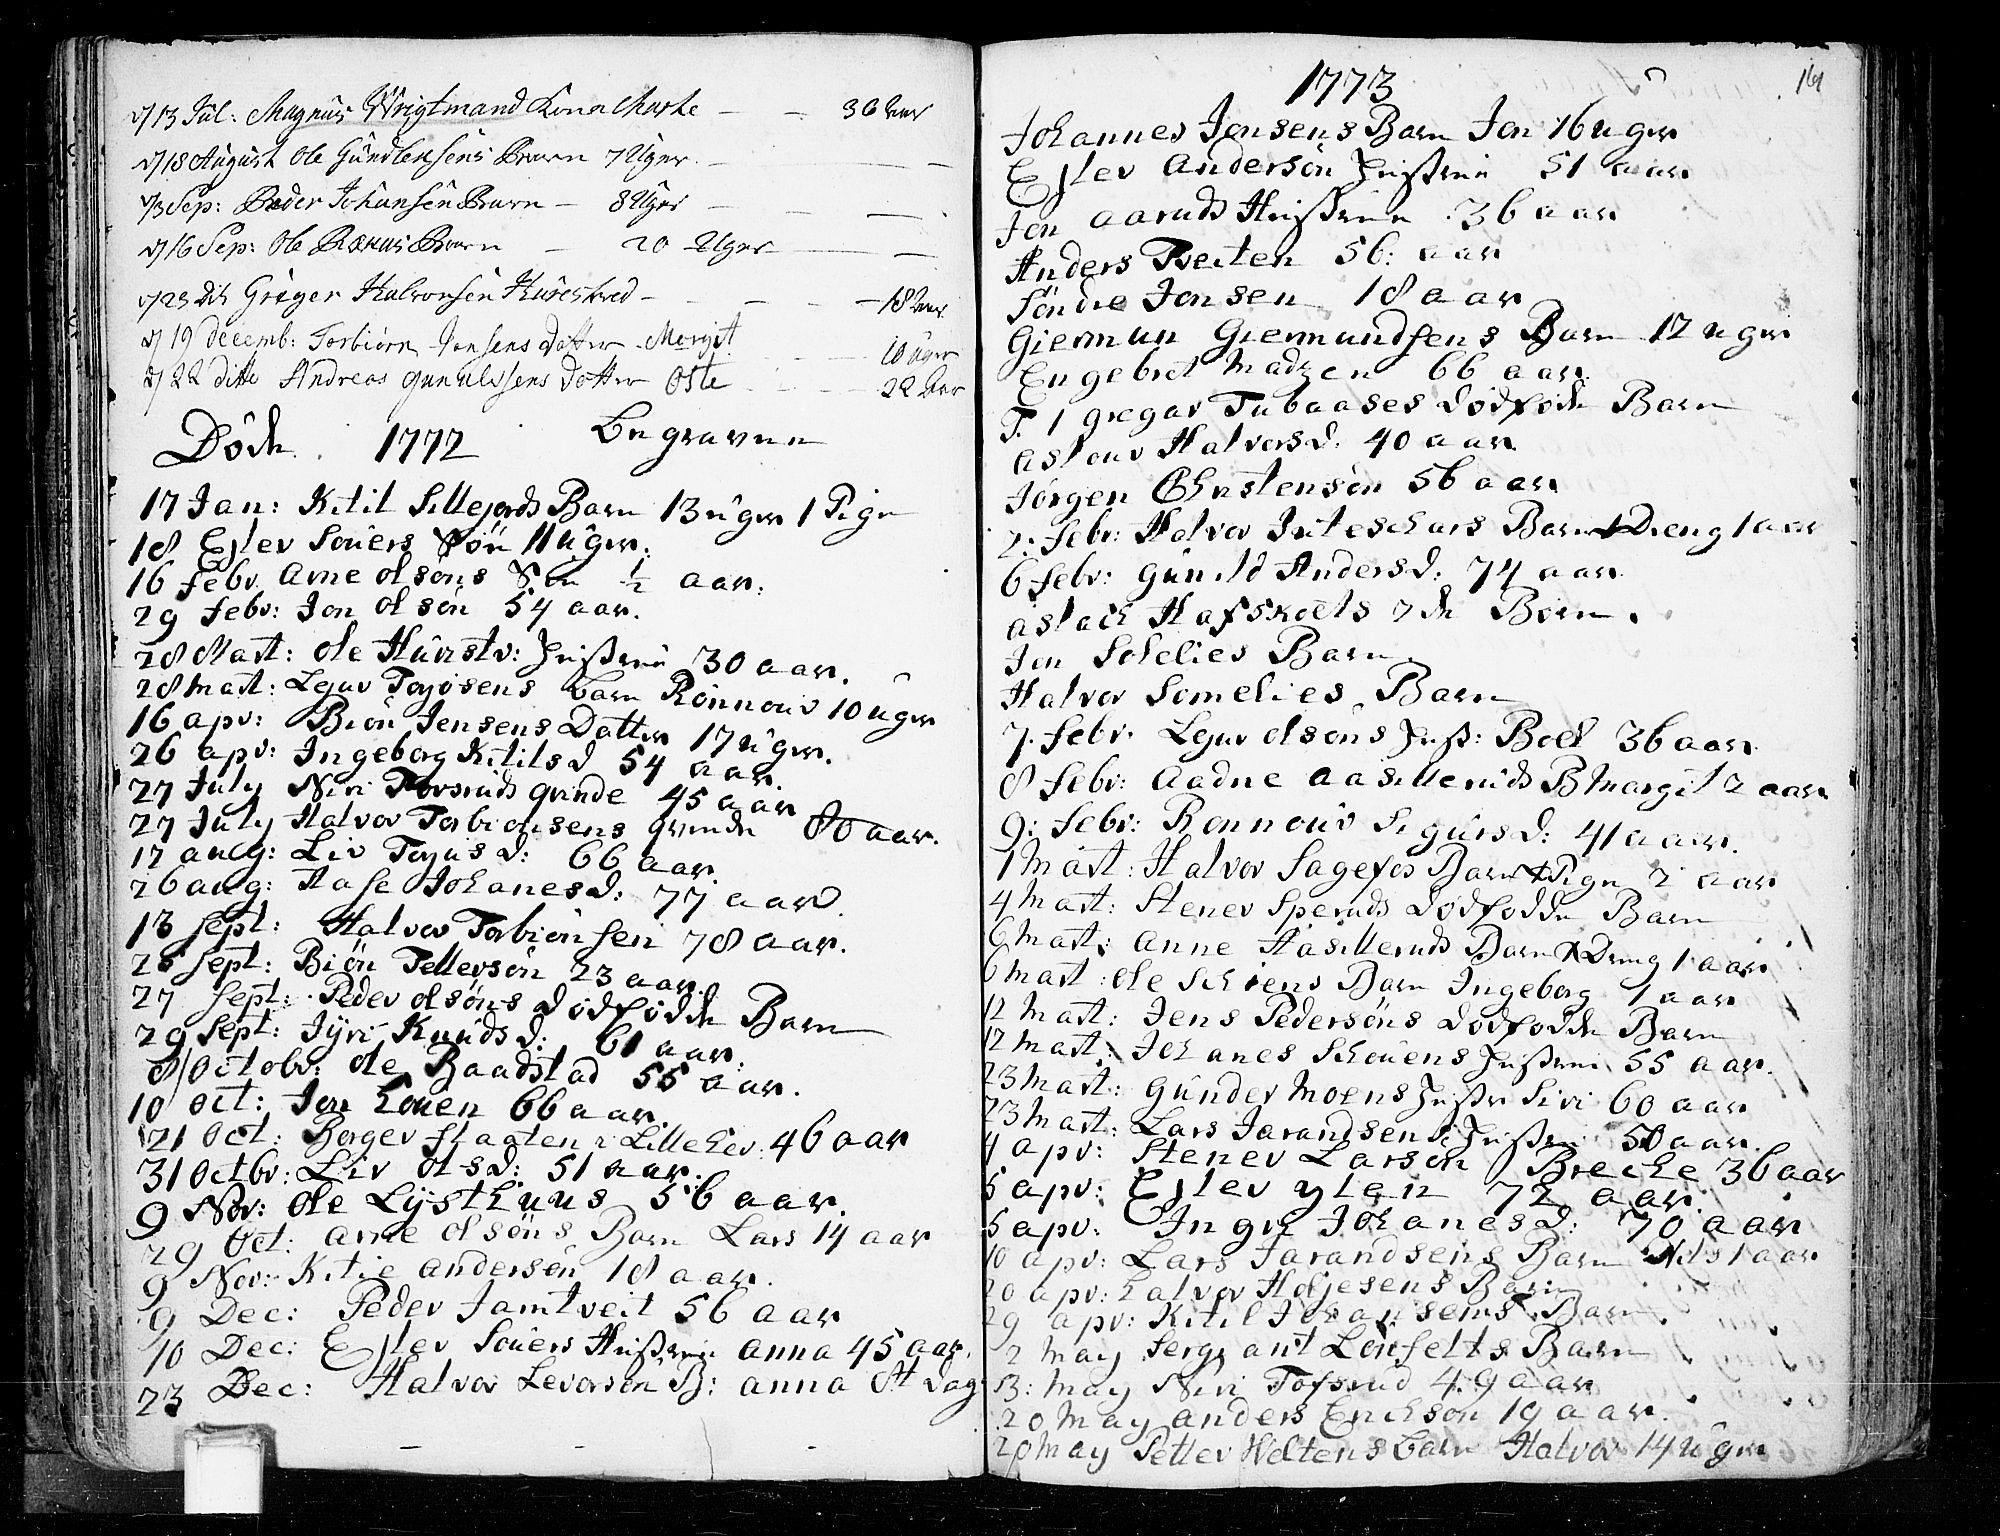 d/13 Jul: Magnus Wrigtmand Kona Marte — — 36 aar
d/18 August Ole Gundlensens Barn 7 Uger — —
d/3 Sep: Peder Johansen Barn — 8 Uger — — —
d/16 Sep: Ole Barn — 20 Uger — —
d/23 Dit Greger Halvorsen — — — 18 aar
d/19 decemb: Torbiörn Jensens datter Margit — — 10 uger
d/22 ditto Andreas gunulfsens dotter Oste — — 22 aar
Döde 1772 begravne
17 Jan: Kitil Sillejords Barn 13 uger 1 Pige
18 Eslev Souers Sön 11 uger.
16 febr. Arne olsöns Sön ½ aar.
29 febr: Jon olsön 54 aar.
28 Mart: ole Hurstv: Hustrue 30 aar.
28 Mart: Legur Torjösens barn Rönnouv 10 uger
16 apr: Biön Jensens Datter 17 uger.
26 apr: Ingeborg Kitilsd 54 aar.
27 July Niri Torsruds qvinde 45 aar
27 July Halvor Torbiönsens qvinde 80 aar.
17 aug: Liv Torjusd: 66 aar.
26 aug: Aase Johanesd: 77 aar.
13 Sept: Halvor Torbiönsen 78 aar.
25 Sept: Biön Tellevsön 23 aar.
27 Sept: Peder olsöns dödfödde Barn
29 Sept: Jyri Knudsd: 61 aar.
8/ Octobr: ole Baadstad 55 aar.
10 Oct: Jon Louen 66 aar.
21 Oct: Borger staaten i Lillehev: 46 aar
31 Octbr: Liv olsd: 51 aar.
9 Nov: ole Lysthuus 56 aar.
29 Oct: Arne olsöns Barn Lars 14 aar
9 Nov: Kitil andersön 18 aar.
9 Dec: Peder Jamtveit 56 aar
10 Dec: Eslev Souers Hustrue anna 45 aar.
23 Dec: Halvor Levorsön B: anna 8t dag
1773 161
Johannes Jensens Barn Jon 16 uger
Eslev Andersön Hustrue 51 aar
Jon aaruds Hustrue 36 aar
Anders Tveiten 56: aar
Söndre Jonsen 18 aar
Giermun Giermundsens Barn 12 uger
Engebret Madzen 66 aar.
T. 1 gregar Tubaases dödfödt Barn
aslouv Halvorsd: 40 aar
Jörgen Christensön 56 aar
2: febr: Halvor Barn 1 Dreng 1 aar
6 febr: gunild Andersd: 74 aar
aslach Hafskoels 2de Börn.
Jon Solelies Barn.
Halvor Somelies Barn
7. febr. Legur olsöns Hust: Boel 36 aar
8 febr: Aadne aasilleruds B Margit 2 aar
9: febr: Rönnouv Sigursd: 41 aar.
1 Mart: Halvor Sagefos Barn 1 Pige 2 aar
4 Mart: Stener Speruds dödfödde Barn
6 Mart: Anne Haasilleruds Barn 1 Dreng 1 aar
6 Mart: ole Schiens Barn Ingeborg 1 aar
12 Mart: Jens Pedersöns dödfödde Barn
12 Mart: Johanes Schouens Hustrue 55 aar.
23 Mart: gunder Moens Hustr Siri 60 aar
23 Mart: Lars Jarandsens Hustrue 50 aar.
4 apr: Stener Larsön Brecke 36 aar
5 apr: Eslev ylen 72 aar.
5 apr: Ingri Johanesd: 70 aar
10 apr: Lars Jarandsens Barn Nils 1 aar
20 apr: halvor Holjesens Barn
29 apr: Kitil Johansens Barn
2 May Sergiant Lönfelts Barn
13: May Niri Tofsrud 49 aar
20 May anders Erichsön 19 aar.
20 May Petter Weltens barn Halvor 14 uger